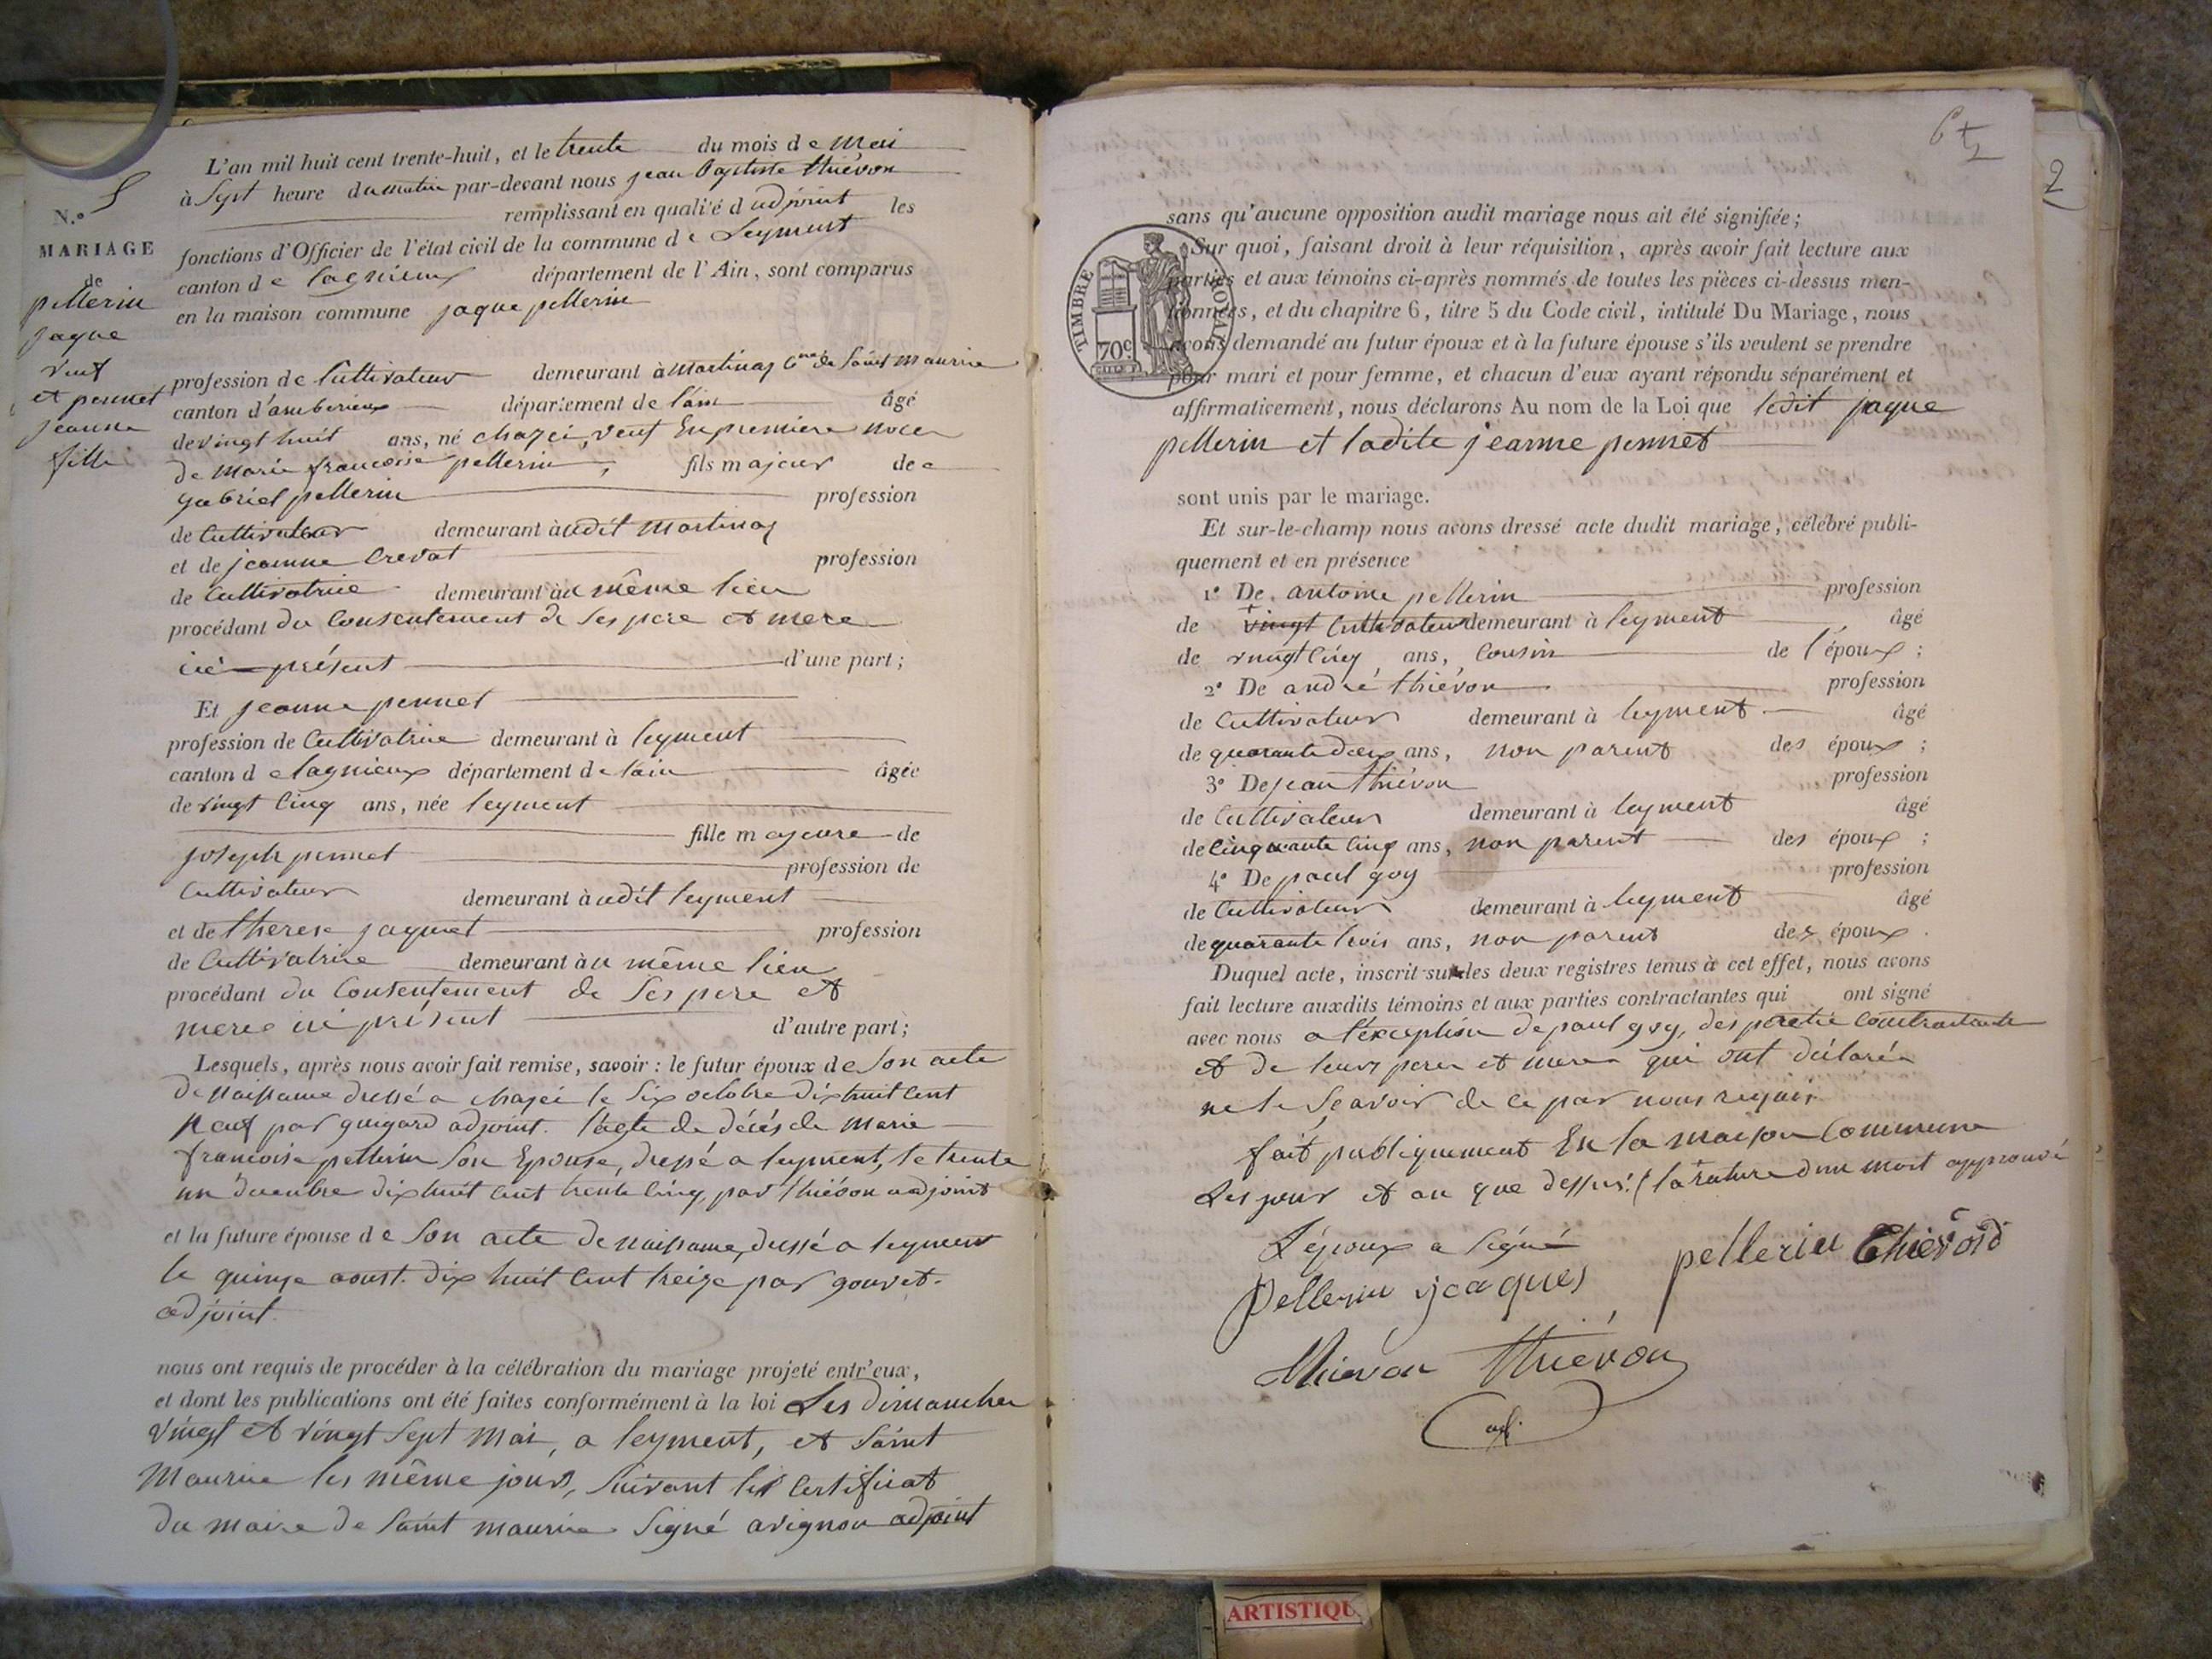 L'an mil huit cent trente-huit, et le trente du mois de Mai
à Sept heure du matin par-devant nous jean Baptiste thiévon
remplissant en qualité d'adjoint les
fonctions d'Officier de l'état civil de la commune de Leyment
canton de Lagnieux département de l'Ain, sont comparus
en la maison commune jaque pellerin
N.º 5
MARIAGE
de
pellerin
jaque
veuf
et pennet
jeanne
fille
profession de Cultivateur demeurant à Martinaz Cne de Saint Maurice
canton d'amberieux département de l'ain âgé
de vingt huit ans, né chazei, veuf En première noce
de Marie françoise pellerin, fils majeur de
gabriel pellerin profession
de Cultivateur demeurant audit Martinaz
et de jeanne Crevat profession
de Cultivatrice demeurant au même lieu
procédant du Consentement de Ses pere et mere
ici présent d'une part;
Et jeanne pennet
profession de Cultivatrice demeurant à leyment
canton de lagnieux département de lain âgée
de vingt Cinq ans, née leyment
fille majeure de
joseph pennet profession de
Cultivateur demeurant audit leyment
et de therese jaquet profession
de Cultivatrice demeurant au même lieu
procédant du Consentement de Ses pere et
mere ici présent d'autre part;
Lesquels, après nous avoir fait remise, savoir: le futur époux de Son acte
de naissance dressé a chazei le Six octobre dix huit cent
neuf par guigard adjoint. l'acte de décés de Marie
françoise pellerin Son Epouse, dressé a leyment, le trente
un décembre dix huit cent trente Cinq, par thiévon adjoint
et la future épouse de Son acte de naissance, dressé a leyment
le quinze aoust. dix huit Cent treize par gouvet.
adjoint.
nous ont requis de procéder à la célébration du mariage projeté entr'eux,
et dont les publications ont été faites conformément à la loi Les dimanches
vingt et vingt Sept Mai, a leyment, et Saint
Maurice les même jours, Suivant les Certificat
du maire de Saint Maurice Signé avignon adjoint
2
sans qu'aucune opposition audit mariage nous ait été signifiée;
Sur quoi, faisant droit à leur réquisition, après avoir fait lecture aux
parties et aux témoins ci-après nommés de toutes les pièces ci-dessus men-
tionnées, et du chapitre 6, titre 5 du Code civil, intitulé Du Mariage, nous
avons demandé au futur époux et à la future épouse s'ils veulent se prendre
pour mari et pour femme, et chacun d'eux ayant répondu séparément et
affirmativement, nous déclarons Au nom de la Loi que ledit jaque
pellerin et ladite jeanne pennet
TIMBRE ROYAL
70c
sont unis par le mariage.
Et sur-le-champ nous avons dressé acte dudit mariage, célébré publi-
quement et en présence
1º De antoine pellerin profession
de vingt Cultivateur demeurant à leyment âgé
de vingt Cinq ans, Cousin de l'époux;
2º De andré thiévon profession
de Cultivateur demeurant à leyment âgé
de quarante deux ans, non parent des époux;
3º De jean thiévon profession
de Cultivateur demeurant à leyment âgé
de cinquante Cinq ans, non parent des époux;
4º De paul goy profession
de Cultivateur demeurant à leyment âgé
de quarante trois ans, non parent des époux.
Duquel acte, inscrit sur les deux registres tenus à cet effet, nous avons
fait lecture auxdits témoins et aux parties contractantes qui ont signé
avec nous a l'exception de paul goy, des partie Contractante
et de leurs peres et meres qui ont déclarés
ne le Sçavoir de ce par nous requis.
fait publiquement En la maison Commune
Les jour et an que dessus. (la rature d'un mot approuvé
L'époux a Signé
pellerin Thiévoid
Pellerin jcaques
Thiévon Thiévon
adj.
ARTISTIQU